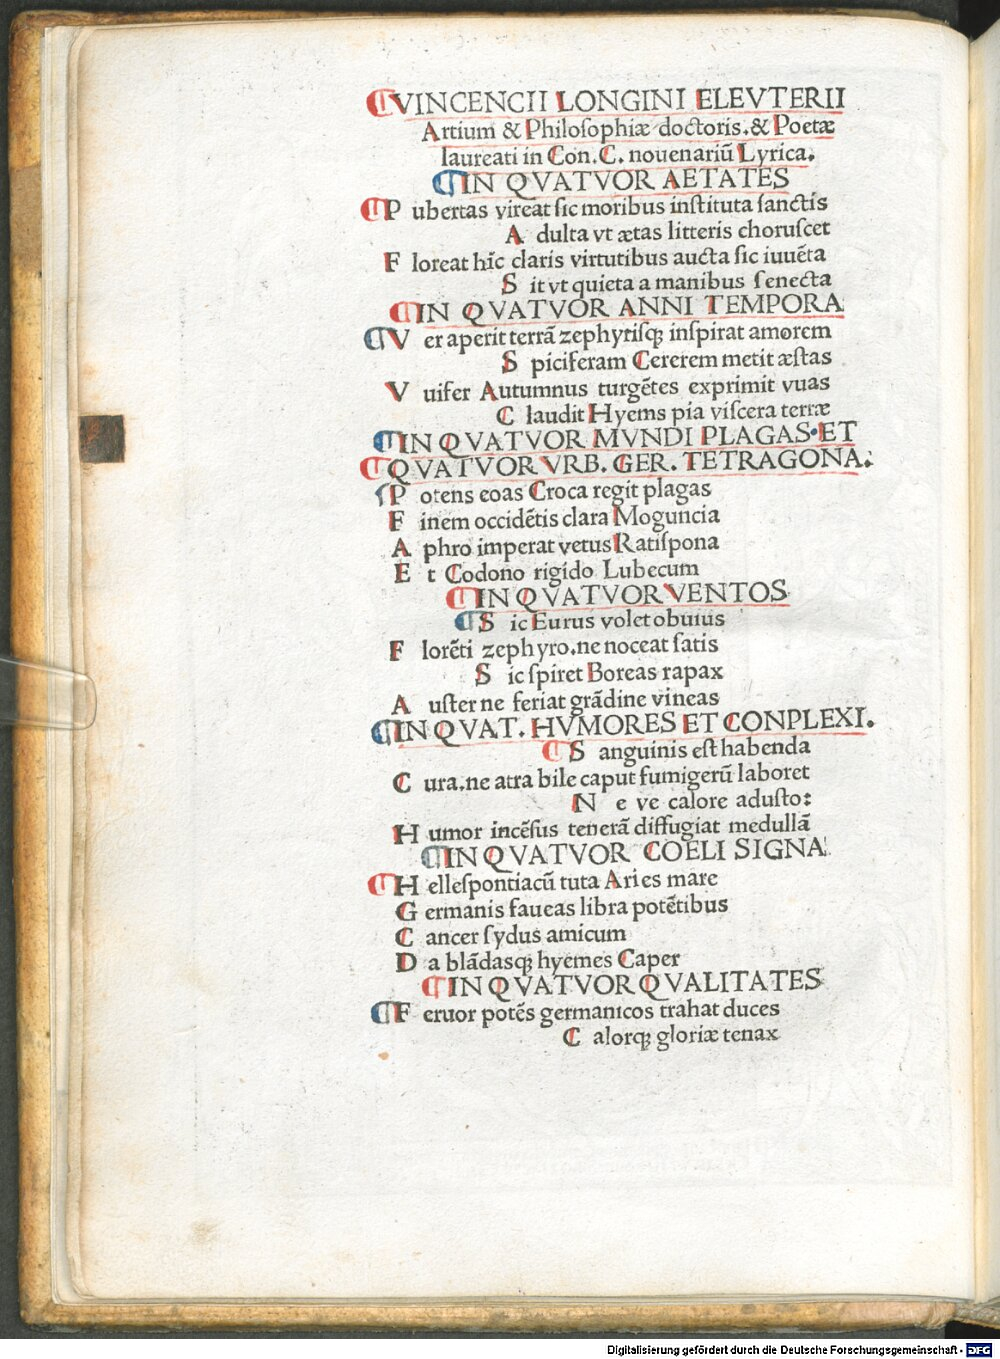 VINCENCII LONGINI ELEVTERII
Artium & Philoſophiæ doctoris.& Poetæ
laureati in Con.C. nouenariū Lyrica.
IN QVATVOR AETATES
P ubertas vireat ſic moribus inſtituta ſanctis
A dulta vt ætas litteris choruſcet
F loreat hīc claris virtutibus aucta ſic iuuēta
S it vt quieta a manibus ſenecta
IN QVATVOR ANNI TEMPORA
V er aperit terrā zephyriſqꝫ inſpirat amorem
S piciferam Cererem metit æſtas
V uifer Autumnus turgētes exprimit vuas
C laudit Hyems pia viſcera terræ
IN QVATVOR MVNDI PLAGAS·ET
QVATVOR VRB. GER. TETRAGONA.
P otens eoas Croca regit plagas
F inem occidētis clara Moguncia
A phro imperat vetus Ratiſpona
E t Codono rigido Lubecum
IN QVATVOR VENTOS
S ic Eurus volet obuius
F lorēti zephyro.ne noceat ſatis
S ic ſpiret Boreas rapax
A uſter ne feriat grādine vineas
IN QVAT. HVMORES ET CONPLEXI.
S anguinis eſt habenda
C ura.ne atra bile caput fumigerū laboret
N e ve calore aduſto:
H umor incēſus tenerā diffugiat medullā
IN QVATVOR COELI SIGNA
H elleſpontiacū tuta Aries mare
G ermanis faueas libra potētibus
C ancer ſydus amicum
D a blādasqꝫ hyemes Caper
IN QVATVOR QVALITATES
F eruor potēs germanicos trahat duces
C alorqꝫ gloriæ tenax
Digitalisierung gefördert durch die Deutsche Forschungsgemeinschaft - DFG